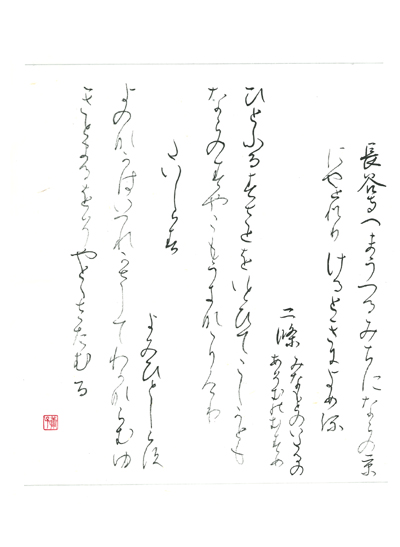 長谷寺へまうつるみちにならの京
にやとれりけるときによめる
二條 みなもとのいたるの
あそむのむすめ
ひとふるすさとをいとひてこしかとも
ならのみやこもうきななりけり
たいしらす
よみひとしらす
よのなかはいつれかさしてわかならむゆ
きとまるをそやとゝさたむる